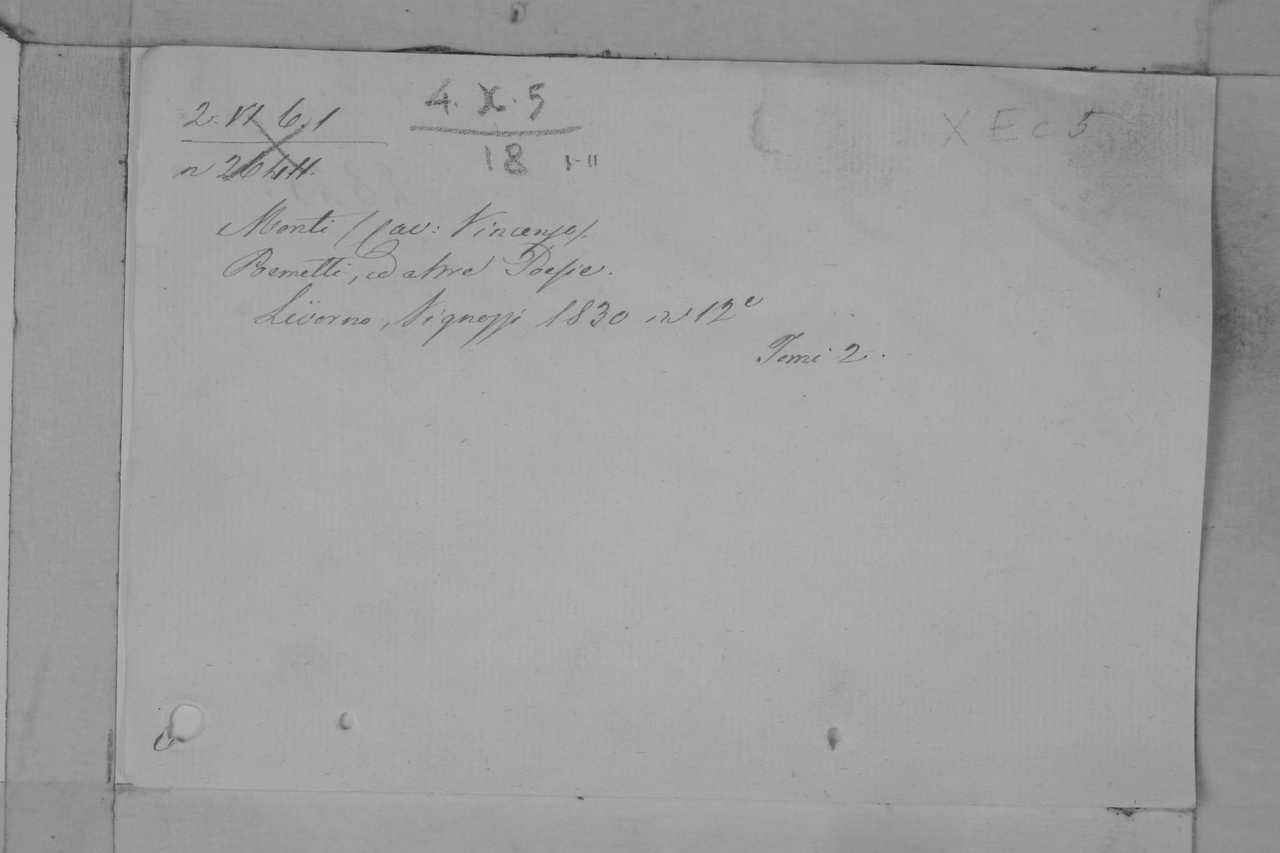 2. VI. 6. 1
4. X. 5
X E c 5
n 2644.
18 I-II
Monti (Cav: Vincenzo).
Poemetti, ed altre Poesie.
Livorno, Vignozzi 1830 in 12º
Tomi 2.